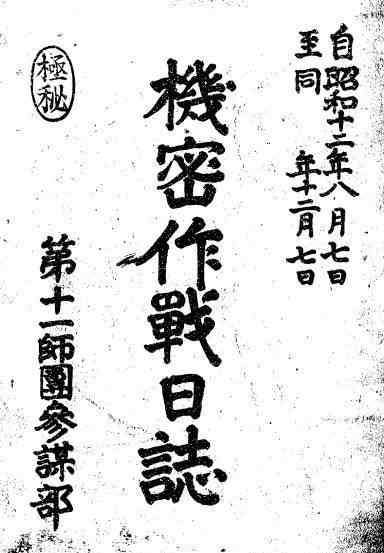 自昭和十二年八月七日
至同　年十二月七日
機密作戰日誌
極秘
第十一師團參謀部